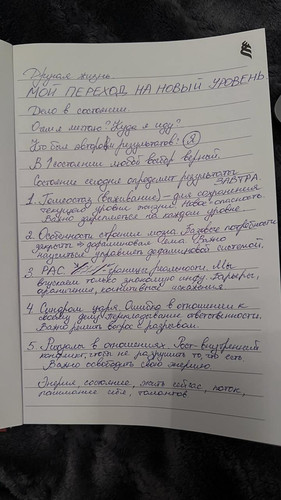 Другая жизнь
МОЙ ПЕРЕХОД НА НОВЫЙ УРОВЕНЬ
Дело в состоянии.
Осмыслить? "Куда я иду"
Кто был автором результатов? Я
В 1 состоянии любой ветер верный.
Состояние сегодня определяет результаты ЗАВТРА
1. Гомеостаз (выживание) – для сохранения
текущего уровня. Опасно
Важно закрепляться на каждом уровне
2. Особенности строения мозга Базовые потребности
закрыты → дофаминовая Важно
научиться управлять дофаминовой системой.
3. РАС. границы реальности. Мы
впускаем только знакомую инфу. Барьеры,
ограничения, когнитивные искажения
4. Синдром царя. Ошибка в отношении к
своему делу. Перекладывание ответственности.
Важно решить вопрос с разрывом.
5. Разрывы в отношениях. Рост – внутренний
конфликт, чтобы не разрушить то, что есть
Важно освободить свою энергию
Энергия, состояние, жить сейчас, поток,
понимание себя, талантов